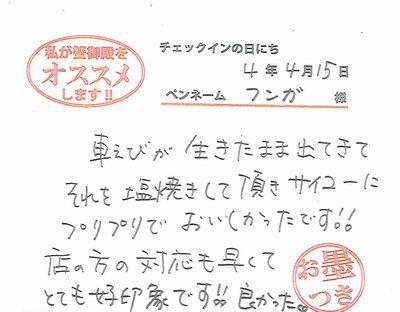 私が蟹御殿を
オススメ
します!!
チェックインの日にち
4年4月15日
ペンネーム フンガ 様
車えびが 生きたまま出てきて
それを塩焼きして頂きサイコーに
プリプリで おいしかったです!!
店の方の対応も早くて
とても好印象です!! 良かった。
お墨
つき